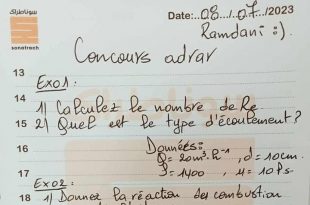 سوناطراك
sonatrach
Date: 08/07/2023
Ramdani :)
Concours adrar
13
Exo1:
14
1) Calculez le nombre de Re
15 2) Quel est le type d'écoulement?
Données:
16 Q = 20m³.h⁻¹, d = 10cm.
ρ = 1400, μ = 10 Ps
17 Exo2:
18 1) Donnez la réaction des combustion